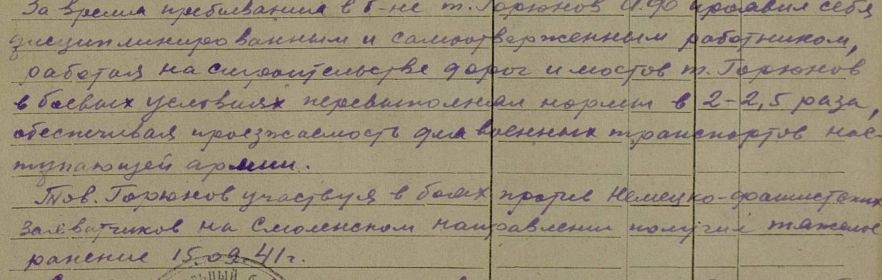 За время пребывания в б-не т. Горюнов проявил себя
дисциплинированным и самоотверженным работником,
работая на строительстве дорог и мостов т. Горюнов
в боевых условиях перевыполнял нормы в 2-2,5 раза,
обеспечивая проезжаемость для военных транспортов нас-
тупающей армии.
Тов. Горюнов участвуя в боях против Немецко-фашистских
захватчиков на Смоленском направлении получил тяжелое
ранение 15.09.41г.